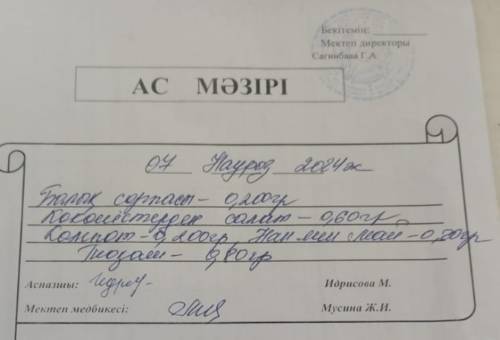 Бекітемін:
Мектеп директоры
Сагинбаева Г.А.
АС МӘЗІРІ
07 Наурыз 2024ж
Балық сорпасы – 0,200гр
Көкөністерден салат – 0,60гр
Компот – 0,200гр, Нан мен май – 0,80гр
– 0,80гр
Аспазшы: Идрисова М.
Мектеп медбикесі: Мусина Ж.И.